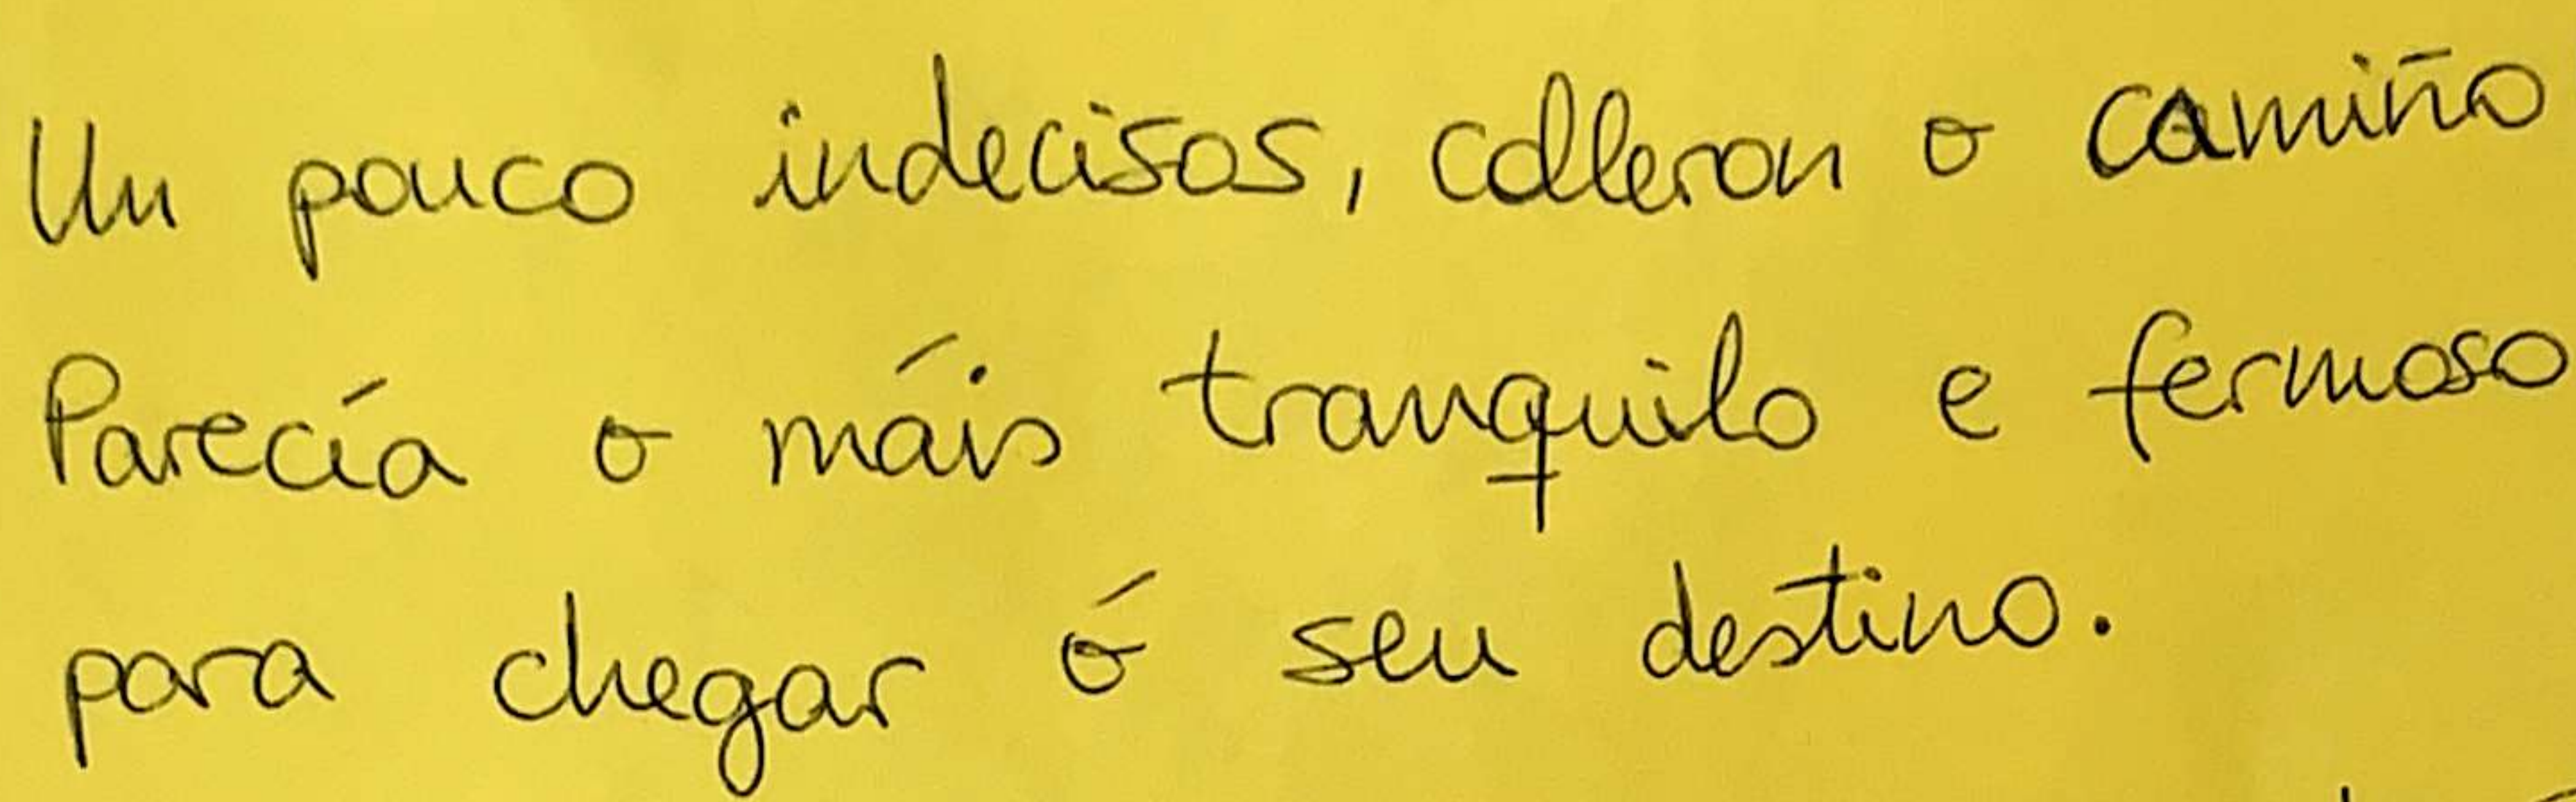 Un pouco indecisos, colleron o camiño
Parecía o máis tranquilo e fermoso
para chegar ó seu destino.